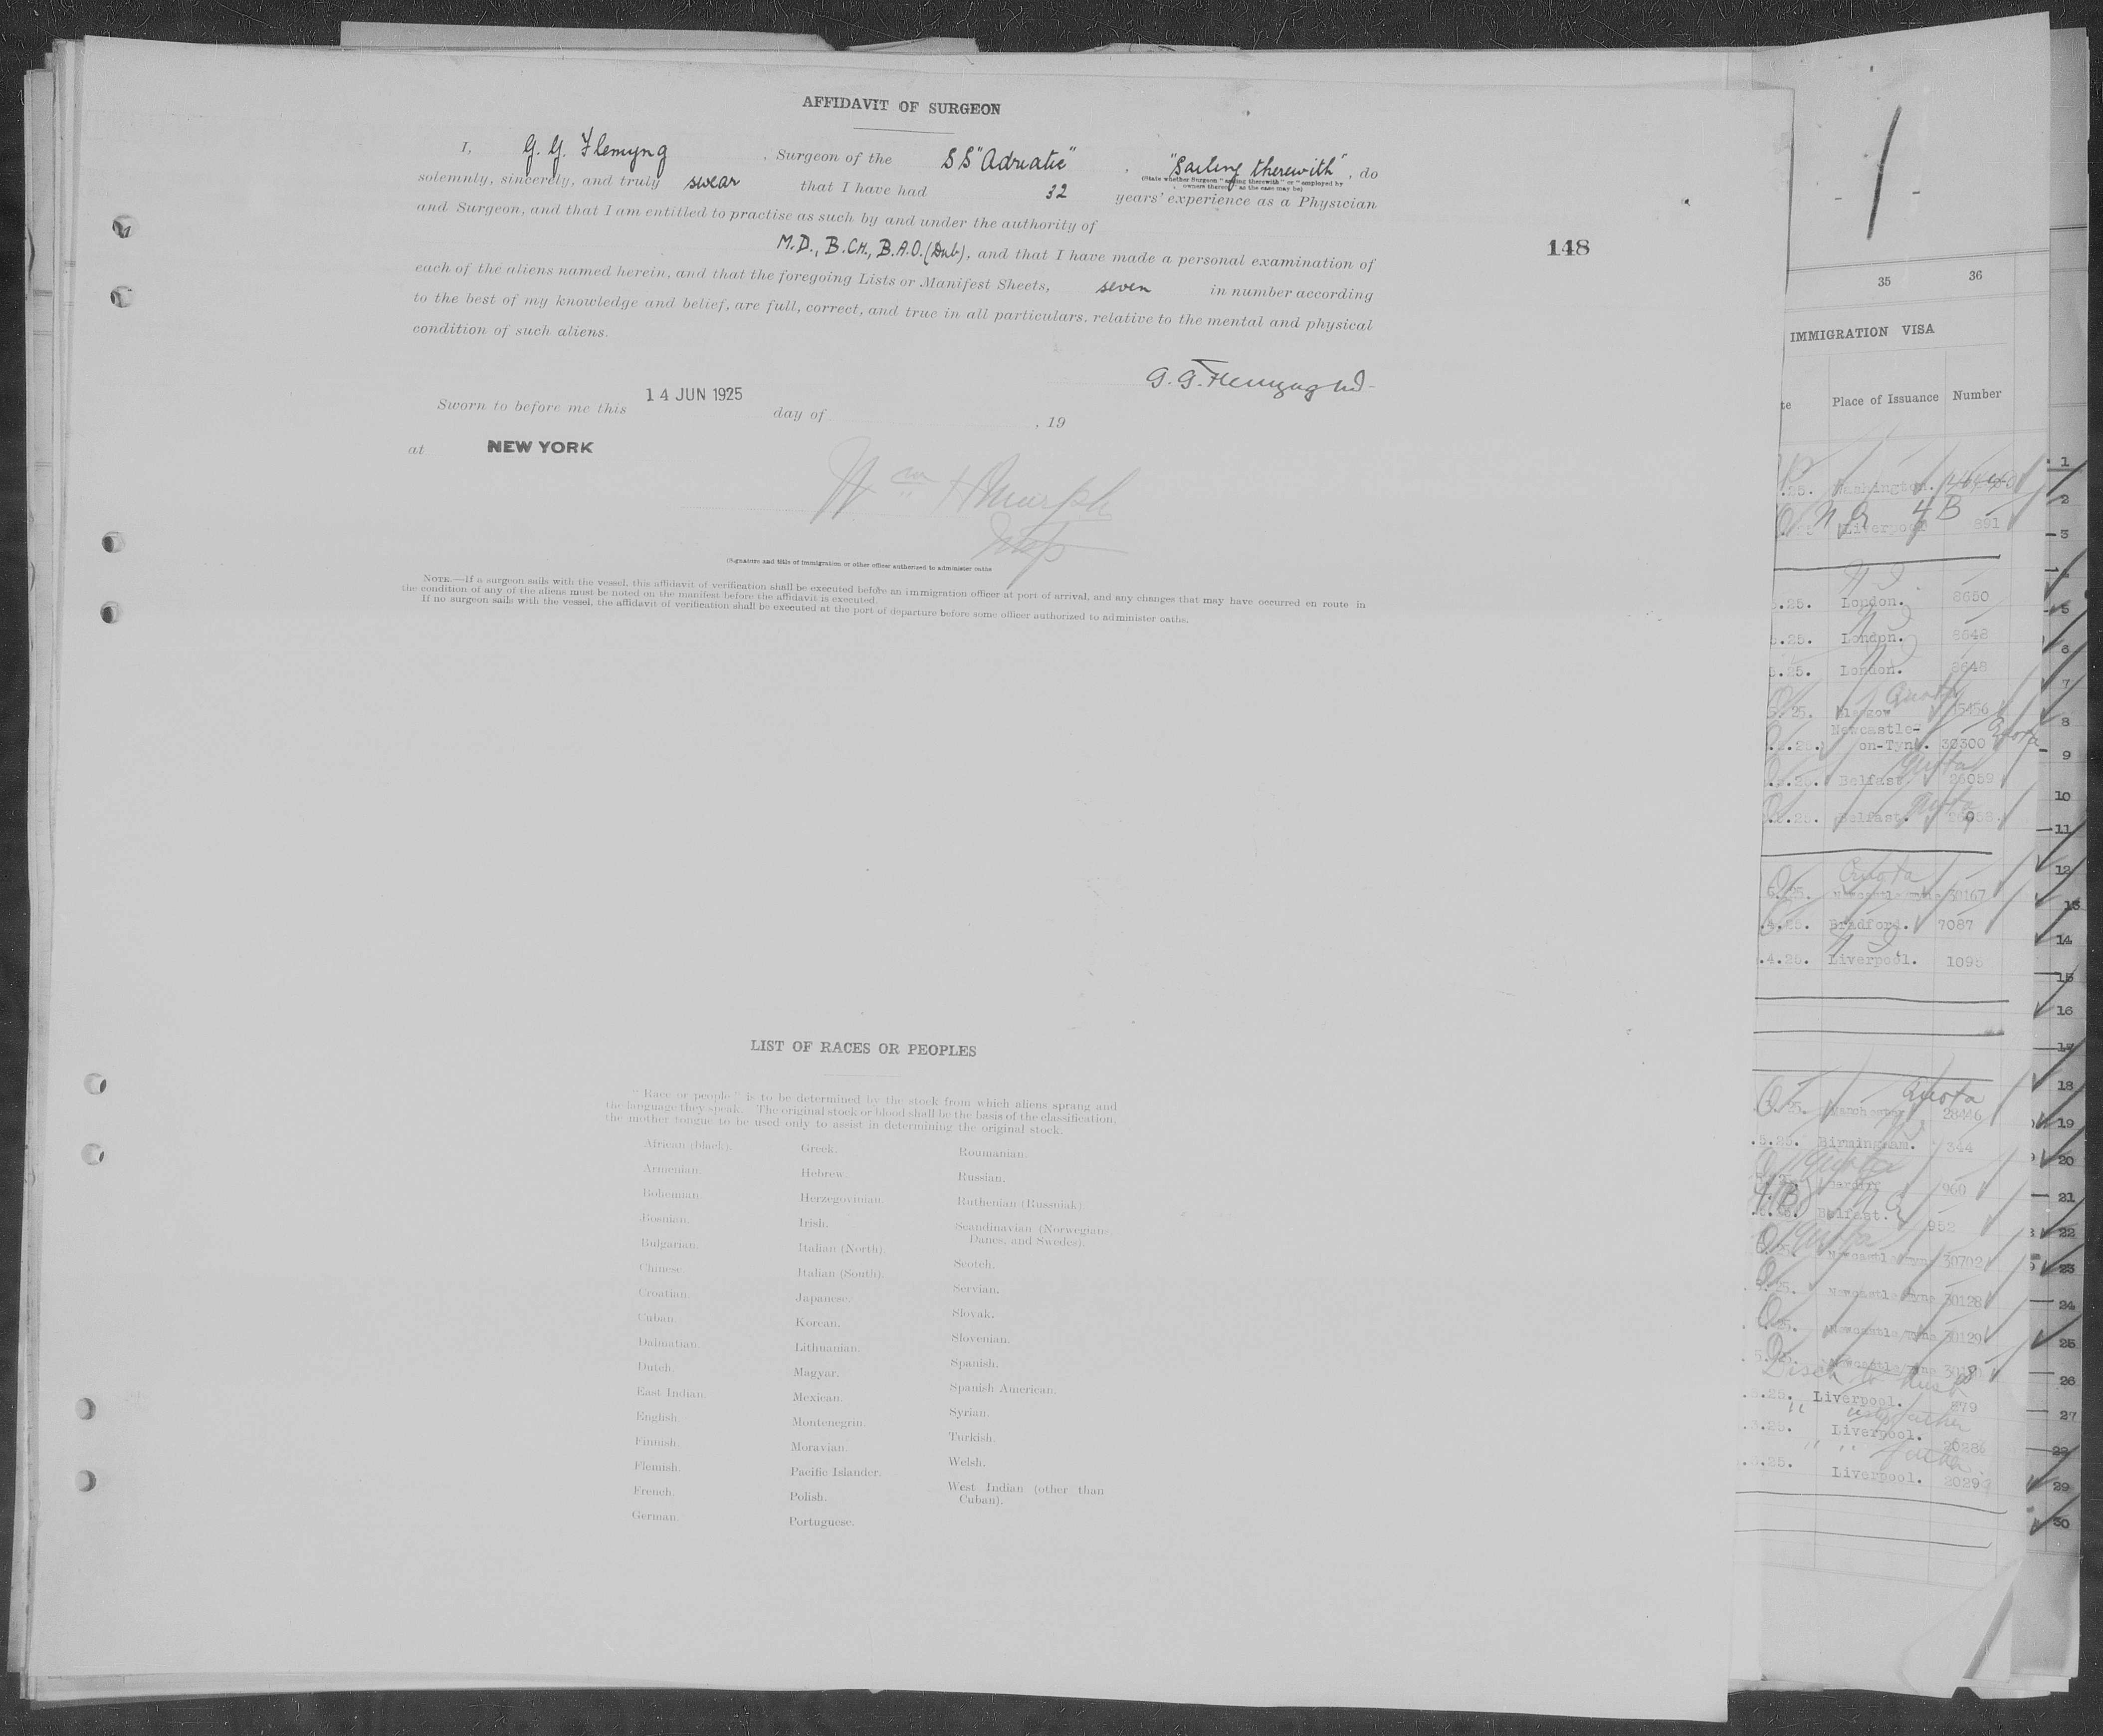 AFFIDAVIT OF SURGEON
I, G. G. Flemyng, Surgeon of the SS "Adriatic", "Sailing therewith", do
(State whether Surgeon "sailing therewith" or "employed by
owners thereof" as the case may be)
solemnly, sincerely, and truly swear that I have had 32 years' experience as a Physician
and Surgeon, and that I am entitled to practise as such by and under the authority of
M.D., B.CH., B.A.O. (Dub), and that I have made a personal examination of
each of the aliens named herein, and that the foregoing Lists or Manifest Sheets, seven in number according
to the best of my knowledge and belief, are full, correct, and true in all particulars, relative to the mental and physical
condition of such aliens.
G. G. Flemyng MD
Sworn to before me this 14 JUN 1925 day of , 19
at NEW YORK
Wm
(Signature and title of immigration or other officer authorized to administer oaths
NOTE.—If a surgeon sails with the vessel, this affidavit of verification shall be executed before an immigration officer at port of arrival, and any changes that may have occurred en route in
the condition of any of the aliens must be noted on the manifest before the affidavit is executed.
If no surgeon sails with the vessel, the affidavit of verification shall be executed at the port of departure before some officer authorized to administer oaths.
148
LIST OF RACES OR PEOPLES
"Race or people" is to be determined by the stock from which aliens sprang and
the language they speak. The original stock or blood shall be the basis of the classification,
the mother tongue to be used only to assist in determining the original stock.
African (black).
Armenian.
Bohemian.
Bosnian.
Bulgarian.
Chinese.
Croatian.
Cuban.
Dalmatian.
Dutch.
East Indian.
English.
Finnish.
Flemish.
French.
German.
Greek.
Hebrew.
Herzegovinian.
Irish.
Italian (North).
Italian (South).
Japanese.
Korean.
Lithuanian.
Magyar.
Mexican.
Montenegrin.
Moravian.
Pacific Islander.
Polish.
Portuguese.
Roumanian.
Russian.
Ruthenian (Russniak).
Scandinavian (Norwegians,
Danes, and Swedes).
Scotch.
Servian.
Slovak.
Slovenian.
Spanish.
Spanish American.
Syrian.
Turkish.
Welsh.
West Indian (other than
Cuban).
35 36
IMMIGRATION VISA
te Place of Issuance Number
.25. Washington.
Liverpool 891
4B
.25. London. 8650
5.25. London. 8648
5.25. London. 8648
Quota
5.25. Glasgow 15456
Newcastle-
.25. on-Tyne. 30300 Quota
Quota
.25. Belfast 26059
Quota
.25. Belfast.
Quota
5.25. Newcastle/Tyne 30167
.4.25. Bradford. 7087
.4.25. Liverpool. 1095
Quota
.25. Manchester 28446
.5.25. Birmingham. 344
Quota
Cardiff 960
Belfast. 952
Quota
.25. Newcastle/Tyne 30702
.25. Newcastle/Tyne 30128
.25. Newcastle/Tyne 30129
5.25. Newcastle/Tyne
.5.25. Liverpool. 879
.25. Liverpool. 20286
.25. Liverpool. 2029
1
2
3
4
5
6
7
8
9
10
11
12
13
14
15
16
17
18
19
20
21
22
23
24
25
26
27
28
29
30